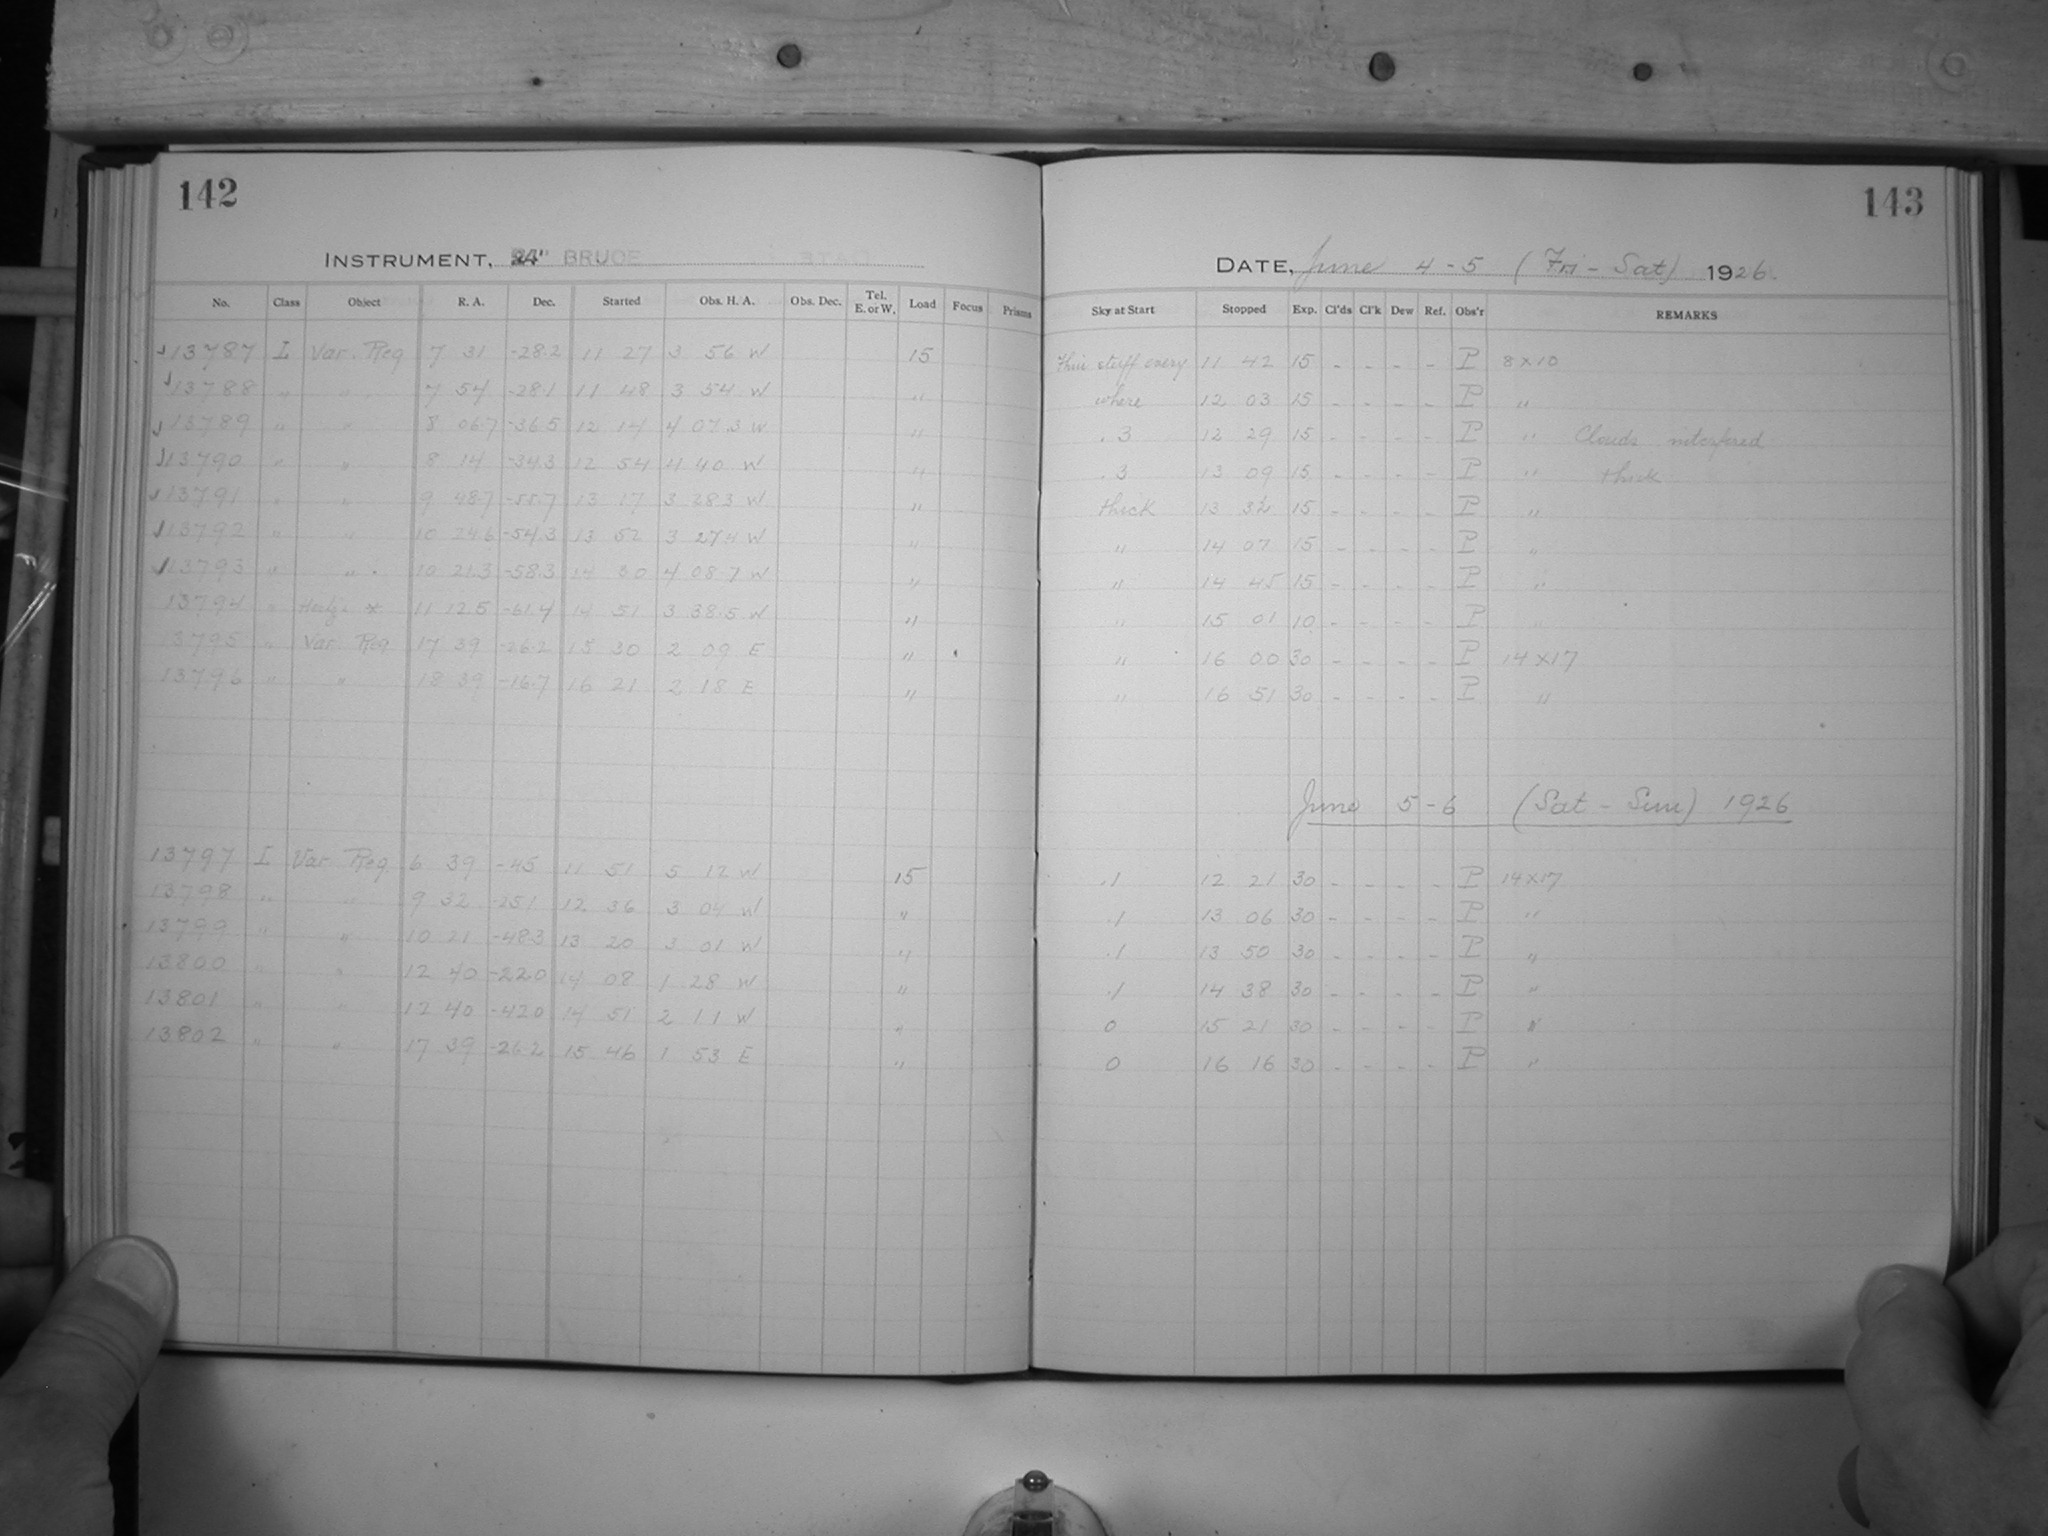 142
143
INSTRUMENT, 24" BRUCE
DATE, June 4-5 (Fri - Sat) 1926
No. Class Object R. A. Dec. Started Obs. H. A. Obs. Dec. Tel. E. or W. Load Focus Prisms Sky at Start Stopped Exp. Cl'ds Cl'k Dew Ref. Obs'r REMARKS
13787 I Var. Reg 7 31 -28.2 11 27 3 56 W 15 Thin stuff every 11 42 15 - - - - P 8x10
13788 " " 7 54 -28.1 11 48 3 54 W " where 12 03 15 - - - - P "
13789 " " 8 06.7 -36.5 12 14 4 07.3 W " .3 12 29 15 - - - - P " Clouds interfered
13790 " " 8 14 -34.3 12 54 4 40 W " .3 13 09 15 - - - - P " thick
13791 " " 9 48.7 -55.7 13 17 3 28.3 W " thick 13 32 15 - - - - P "
13792 " " 10 24.6 -54.3 13 52 3 27.4 W " " 14 07 15 - - - - P "
13793 " " 10 21.3 -58.3 14 30 4 08.7 W " " 14 45 15 - - - - P "
13794 " 11 12.5 -61.4 14 51 3 38.5 W " " 15 01 10 - - - - P "
13795 " Var. Reg 17 39 -26.2 15 30 2 09 E " " 16 00 30 - - - - P 14x17
13796 " " 18 39 -16.7 16 21 2 18 E " " 16 51 30 - - - - P "
June 5-6 (Sat - Sun) 1926
13797 I Var Reg 6 39 -45 11 51 5 12 W 15 .1 12 21 30 - - - - P 14x17
13798 " " 9 32 -25.1 12 36 3 04 W " .1 13 06 30 - - - - P "
13799 " " 10 21 -48.3 13 20 3 01 W " .1 13 50 30 - - - - P "
13800 " " 12 40 -22.0 14 08 1 28 W " .1 14 38 30 - - - - P "
13801 " " 12 40 -42.0 14 51 2 11 W " 0 15 21 30 - - - - P "
13802 " " 17 39 -26.2 15 46 1 53 E " 0 16 16 30 - - - - P "